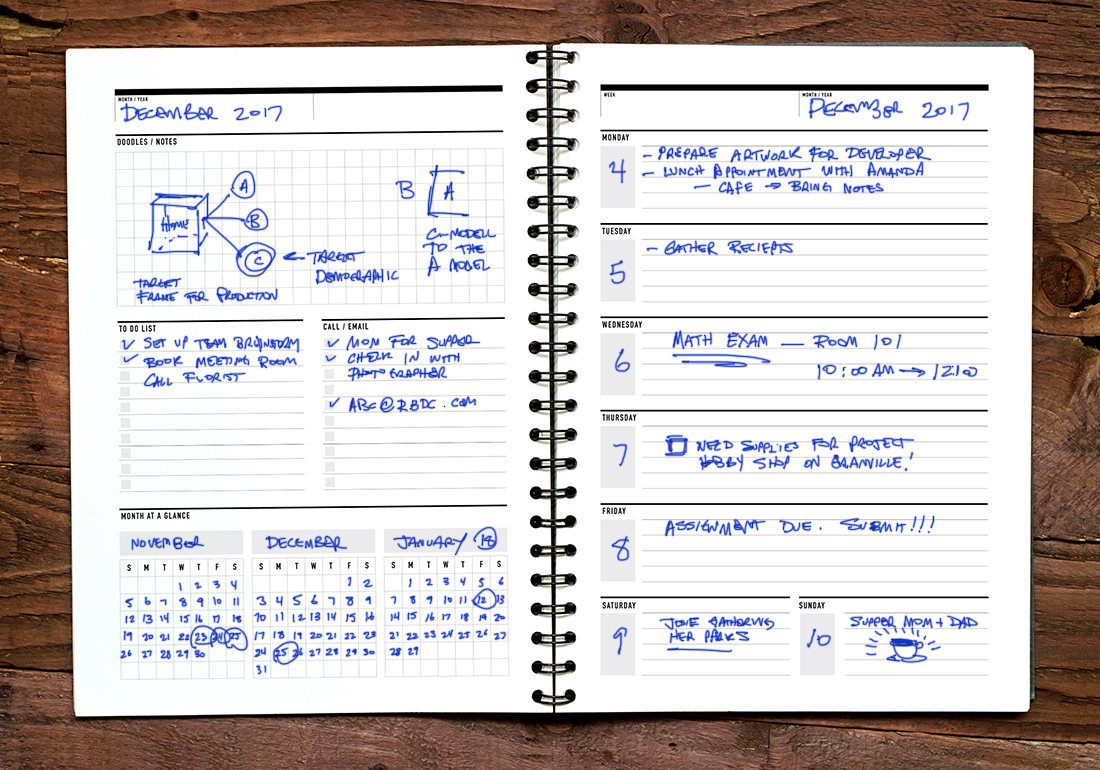 MONTH / YEAR
DECEMBER 2017
DOODLES / NOTES
A
Home
B
C
TARGET
DEMOGRAPHIC
TARGET
FRAME FOR PRODUCTION
B
A
C-MODELL
TO THE
A MODEL
TO DO LIST
SET UP TEAM BRAINSTORM
BOOK MEETING ROOM
CALL FLORIST
CALL / EMAIL
MOM FOR SUPPER
CHECK IN WITH
PHOTOGRAPHER
ABC@RBDC.COM
MONTH AT A GLANCE
NOVEMBER
S M T W T F S
1 2 3 4
5 6 7 8 9 10 11
12 13 14 15 16 17 18
19 20 21 22 23 24 25
26 27 28 29 30
DECEMBER
S M T W T F S
1 2
3 4 5 6 7 8 9
10 11 12 13 14 15 16
17 18 19 20 21 22 23
24 25 26 27 28 29 30
31
JANUARY 18
S M T W T F S
1 2 3 4 5 6
7 8 9 10 11 12 13
14 15 16 17 18 19 20
21 22 23 24 25 26 27
28 29
WEEK
MONTH / YEAR
DECEMBER 2017
MONDAY
4
- PREPARE ARTWORK FOR DEVELOPER
- LUNCH APPOINTMENT WITH AMANDA
- CAFE → BRING NOTES
TUESDAY
5
- GATHER RECIEPTS
WEDNESDAY
6
MATH EXAM — ROOM 101
10:00 AM → 12:00
THURSDAY
7
NEED SUPPLIES FOR PROJECT
HOBBY SHOP ON GRANVILLE!
FRIDAY
8
ASSIGNMENT DUE. SUBMIT!!!
SATURDAY
9
GATHERING
HER
SUNDAY
10
SUPPER MOM + DAD